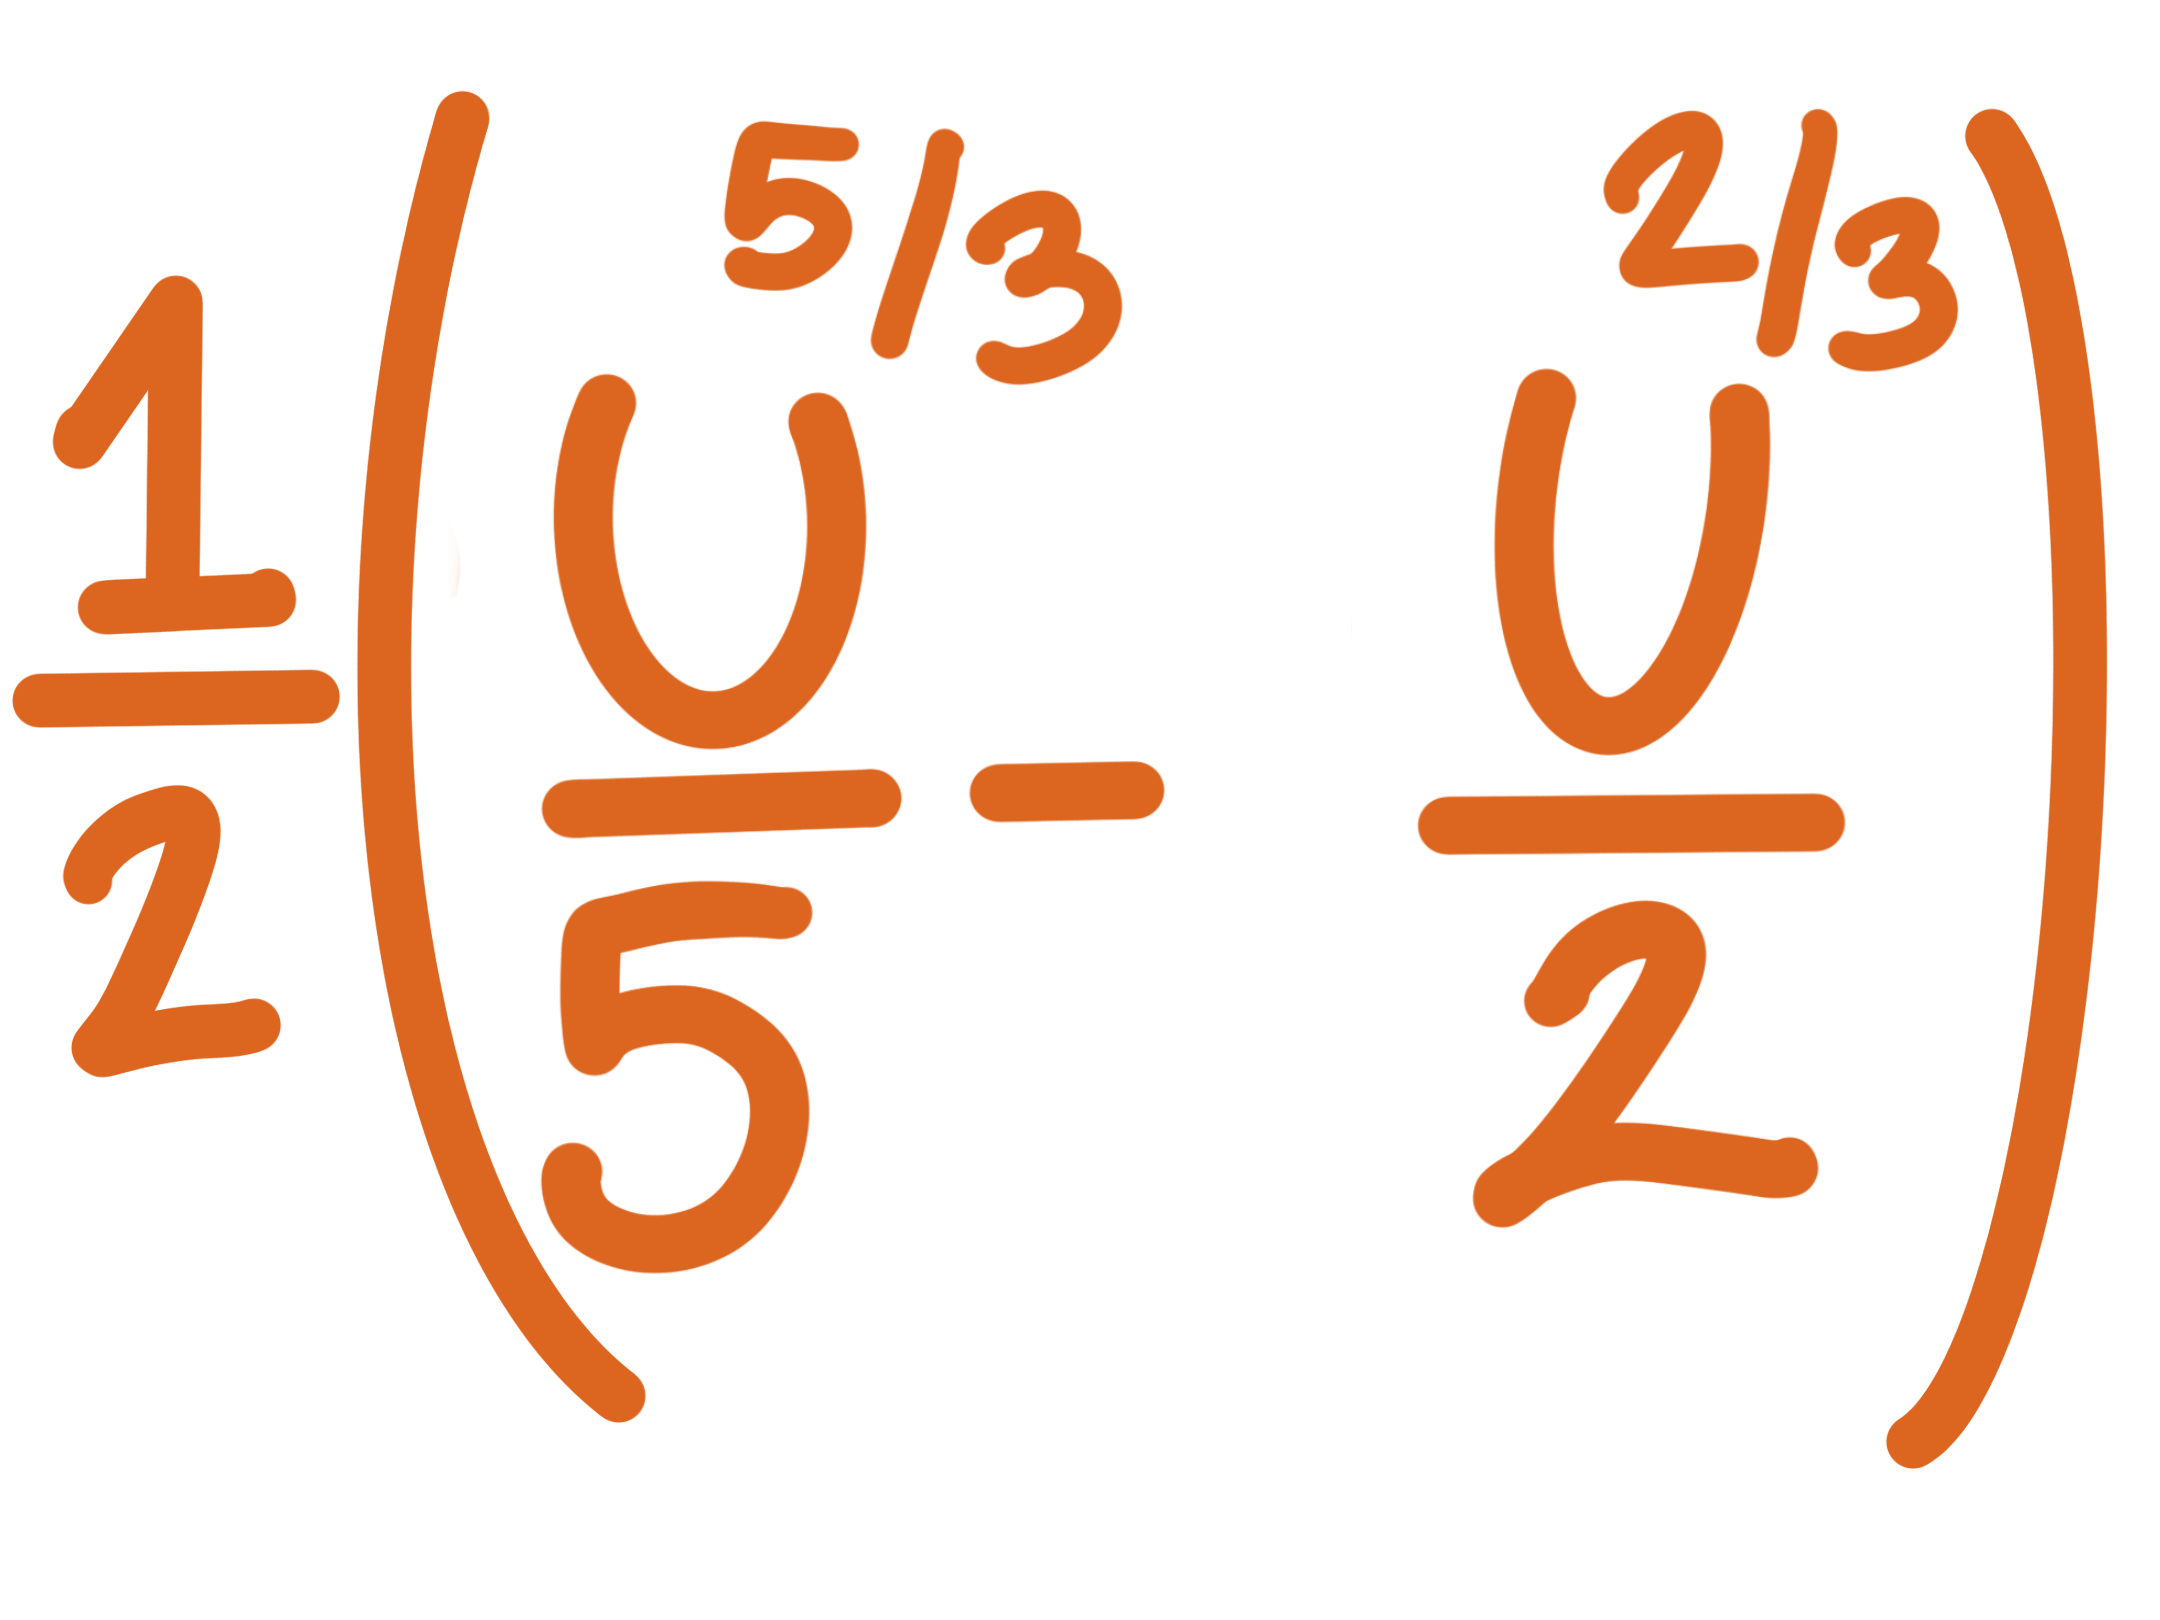 1/2 ( U^{5/3}/5 - U^{2/3}/2 )